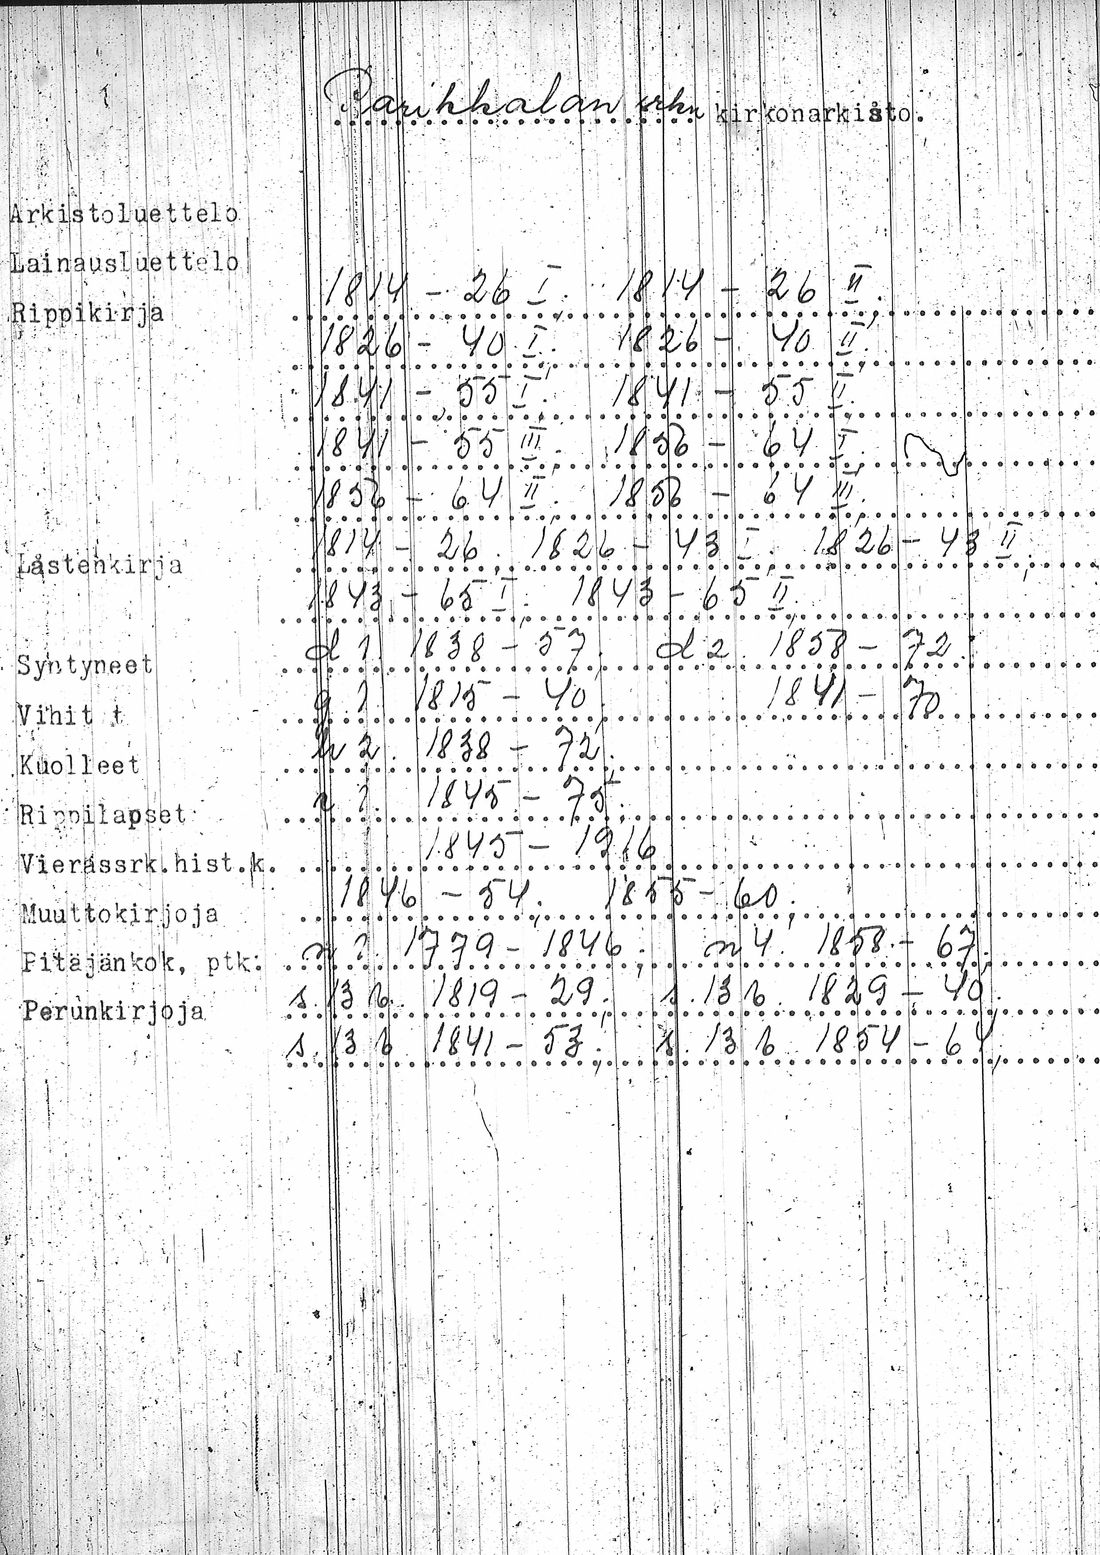 Parikkalan srkn kirkonarkisto.
Arkistoluettelo
Lainausluettelo
Rippikirja 1814 - 26 I. 1814 - 26 II;
1826 - 40 I. 1826 - 40 II;
1841 - 55 I; 1841 - 55 II.
1841 - 55 III. 1856 - 64 I;
1856 - 64 II; 1856 - 64 III;
Lastenkirja 1814 - 26; 1826 - 43 I; 1826 - 43 II;
1843 - 65 I; 1843 - 65 II;
Syntyneet d 1. 1838 - 57; d 2. 1858 - 72.
Vihit t g. 1. 1815 - 40; 1841 - 70
Kuolleet h 2. 1838 - 72;
Rippilapset 1845 - 75;
Vierassrk.hist.k. 1845 - 1916
Muuttokirjoja 1846 - 54; 1855 - 60;
Pitäjänkok, ptk: n 1. 1779 - 1846; n 4. 1858 - 67;
Perunkirjoja s. 13 b. 1819 - 29; s. 13 b. 1829 - 40;
s. 13 b 1841 - 53; s. 13 b. 1854 - 64;